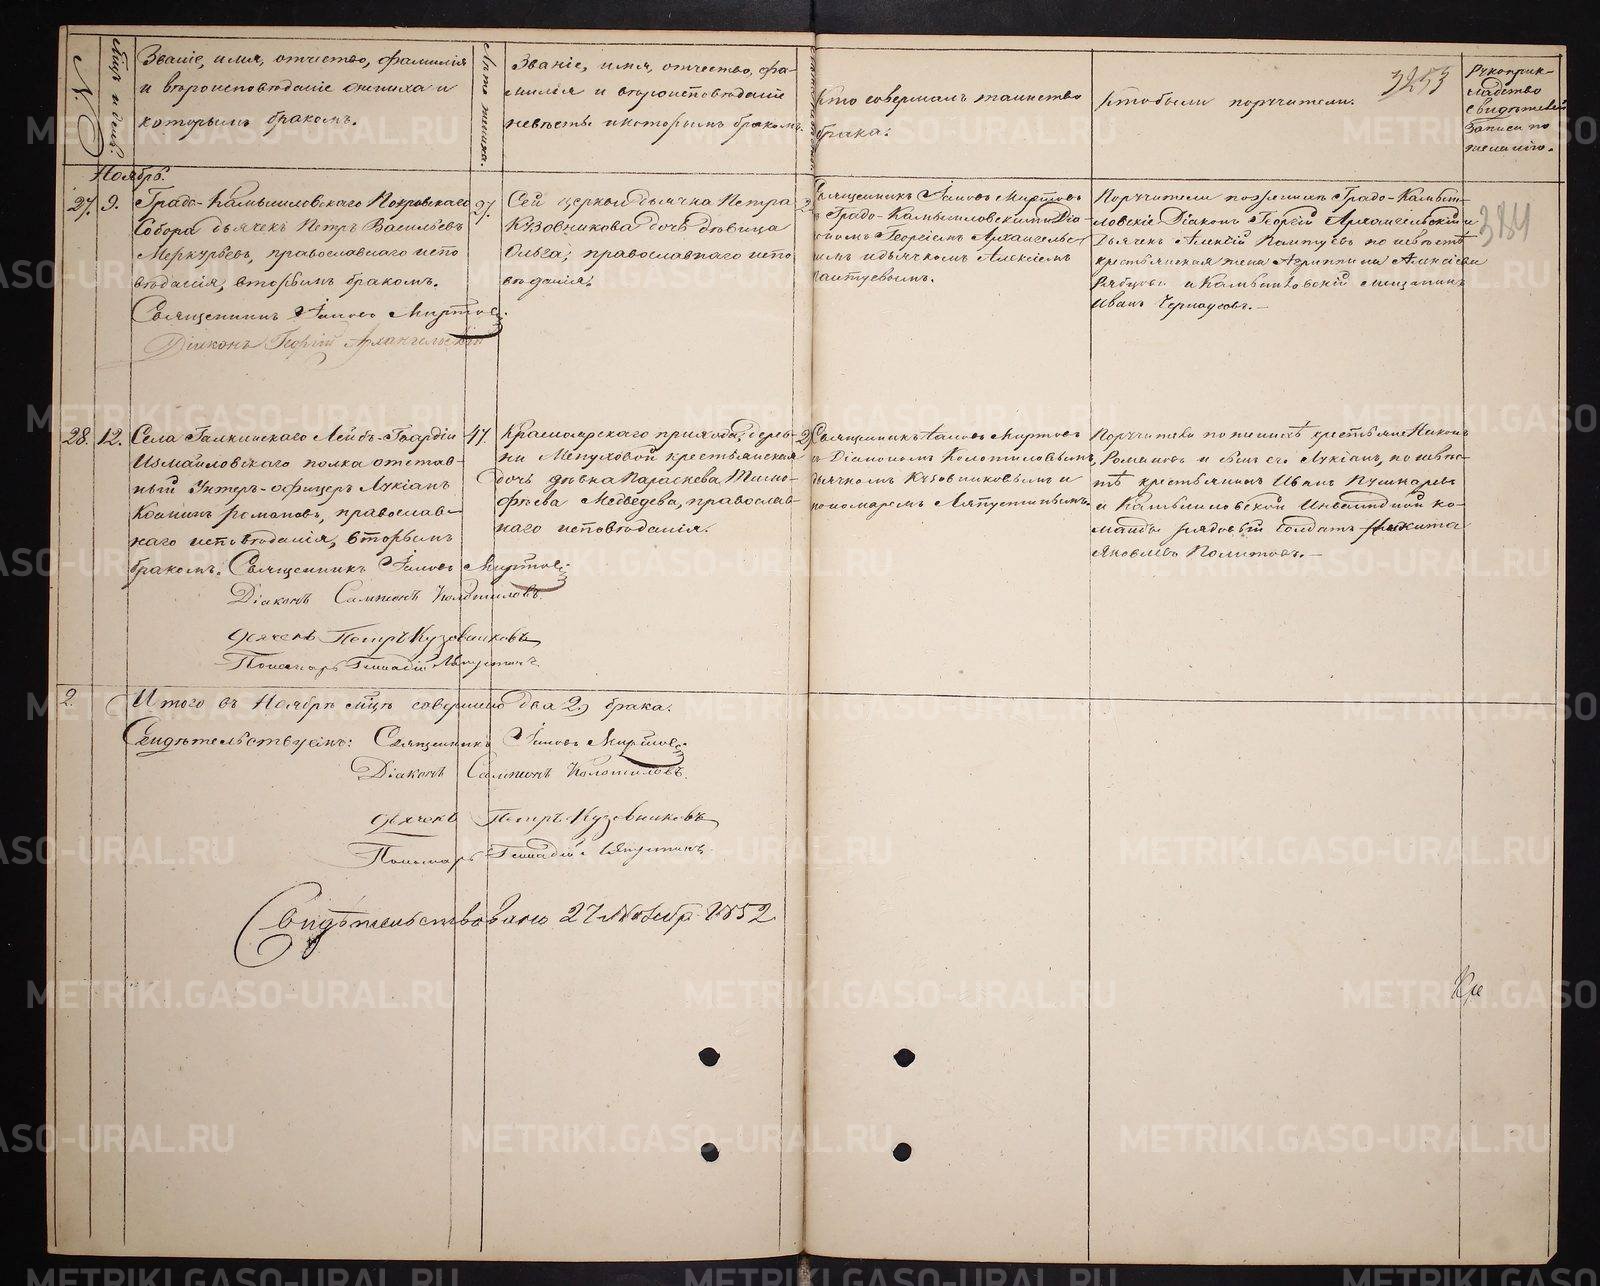 N.
Мцъ и день.
Званіе, имя, отчество, фамилія
и вѣроисповѣданіе жениха и
которымъ бракомъ.
Лѣта жениха.
Званіе, имя, отчество, фа-
милія и вѣроисповѣданіе
невѣсты и которымъ бракомъ.
Кто совершалъ таинство
брака.
Кто были поручители.
3253
Рукоприк-
ладство
свидѣтелей
записи по
желанію.
Ноябрь.
27. 9.
Градо-Камышловскаго Покровскаго
Собора дьячекъ Петръ Васильевъ
Меркурьевъ, православнаго испо
вѣданія, вторымъ бракомъ.
Священникъ Іаковъ Миртовъ
Діаконъ Георгій Архангельскій
27.
Сей церкви дьячка Петра
Кузовникова дочь дѣвица
Ольга, православнаго испо
вѣданія.
2
Священникъ Іаковъ Миртовъ
съ Градо-Камышловскимъ Діа-
кономъ Георгіемъ Архангельс
кимъ и дьячкомъ Алексіемъ
Поручители по женихѣ Градо-Камыш-
ловскіе Діаконъ Георгій Архангельскій и
дьячекъ Алексій по невѣстѣ
крестьянская жена Агриппина Алексіева
и Камышловскій мещанинъ
Иванъ Черноусовъ.
384
28. 12.
Села Галкинскаго Лейбъ-Гвардіи
Измайловскаго полка отстав-
ный Унтеръ-офицеръ Лукіанъ
Романовъ, православ-
наго исповѣданія, вторымъ
бракомъ. Священникъ Іаковъ Миртовъ
Діаконъ Сампсонъ Колотиловъ.
дьячекъ Петръ Кузовниковъ
Пономарь Геннадій Ляпустинъ.
47.
Красноярскаго прихода, дерев-
ни крестьянская
дочь дѣвка Параскева Тимо-
фѣева Медведева, православ-
наго исповѣданія.
2
Священникъ Іаковъ Миртовъ
съ Діакономъ Колотиловымъ,
дьячкомъ Кузовниковымъ и
пономаремъ Ляпустинымъ.
Поручители по женихѣ крестьяне Никонъ
Романовъ и сынъ его Лукіанъ, по невѣс-
тѣ крестьянинъ Иванъ Пушкаревъ
и Камышловской Инвалидной ко-
манды рядовый солдатъ Никита
Яковлевъ Политовъ.
2.
Итого въ Ноябрѣ мцѣ совершено два 2, брака.
Свидѣтельствуемъ: Священникъ Іаковъ Миртовъ
Діаконъ Сампсонъ Колотиловъ.
дьячекъ Петръ Кузовниковъ
Пономарь Геннадій Ляпустинъ.
Свидѣтельствовано 27 Ноября 1852
METRIKI.GASO-URAL.RU